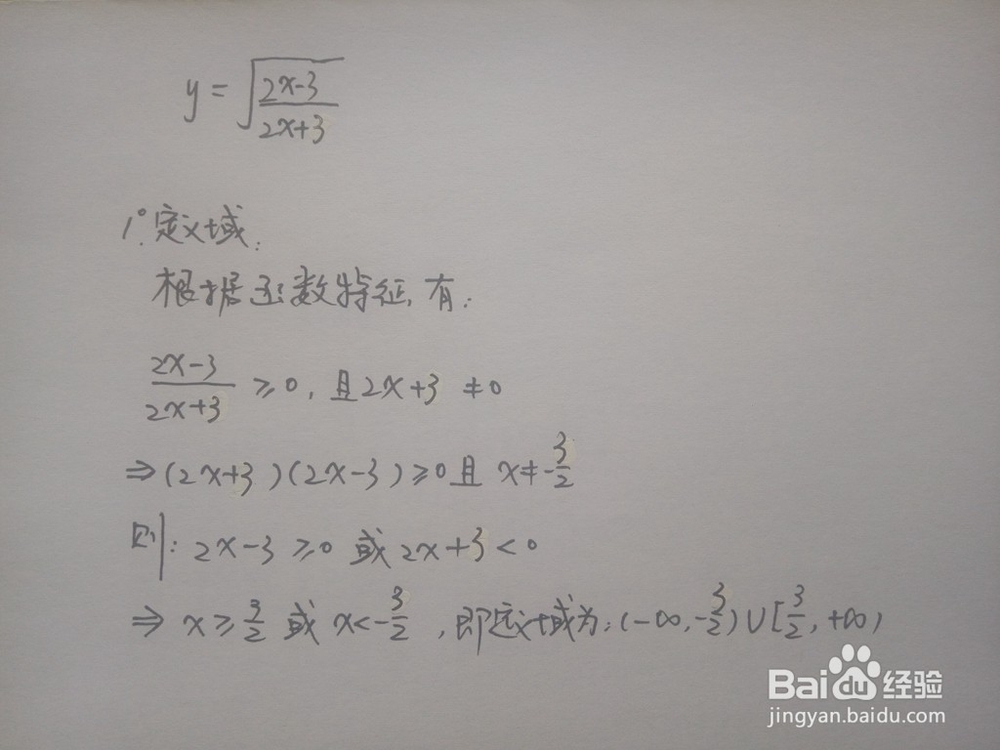 y = √((2x-3)/(2x+3))
1°. 定义域:
根据函数特征, 有:
(2x-3)/(2x+3) ≥ 0, 且 2x+3 ≠ 0
⇒ (2x+3)(2x-3) ≥ 0 且 x ≠ -3/2
则: 2x-3 ≥ 0 或 2x+3 < 0
⇒ x ≥ 3/2 或 x < -3/2, 即定义域为: (-∞, -3/2) ∪ [3/2, +∞)
Baidu 经验
jingyan.baidu.com